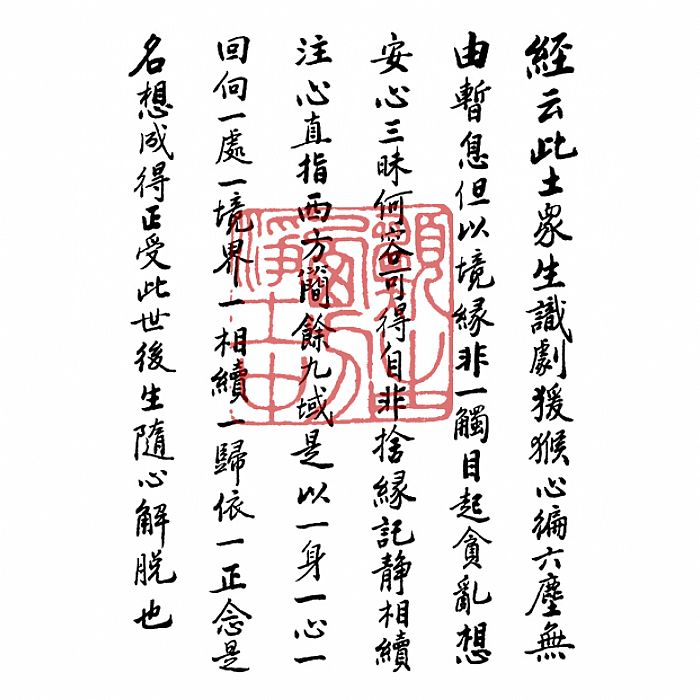 經云此土眾生識劇猨猴心徧六塵無
由暫息但以境緣非一觸目起貪亂想
安心三昧何容可得自非捨緣託静相續
注心直指西方簡餘九域是以一身一心一
回向一處一境界一相續一歸依一正念是
名想成得正受此世後生隨心解脱也
願生
西方
淨土中